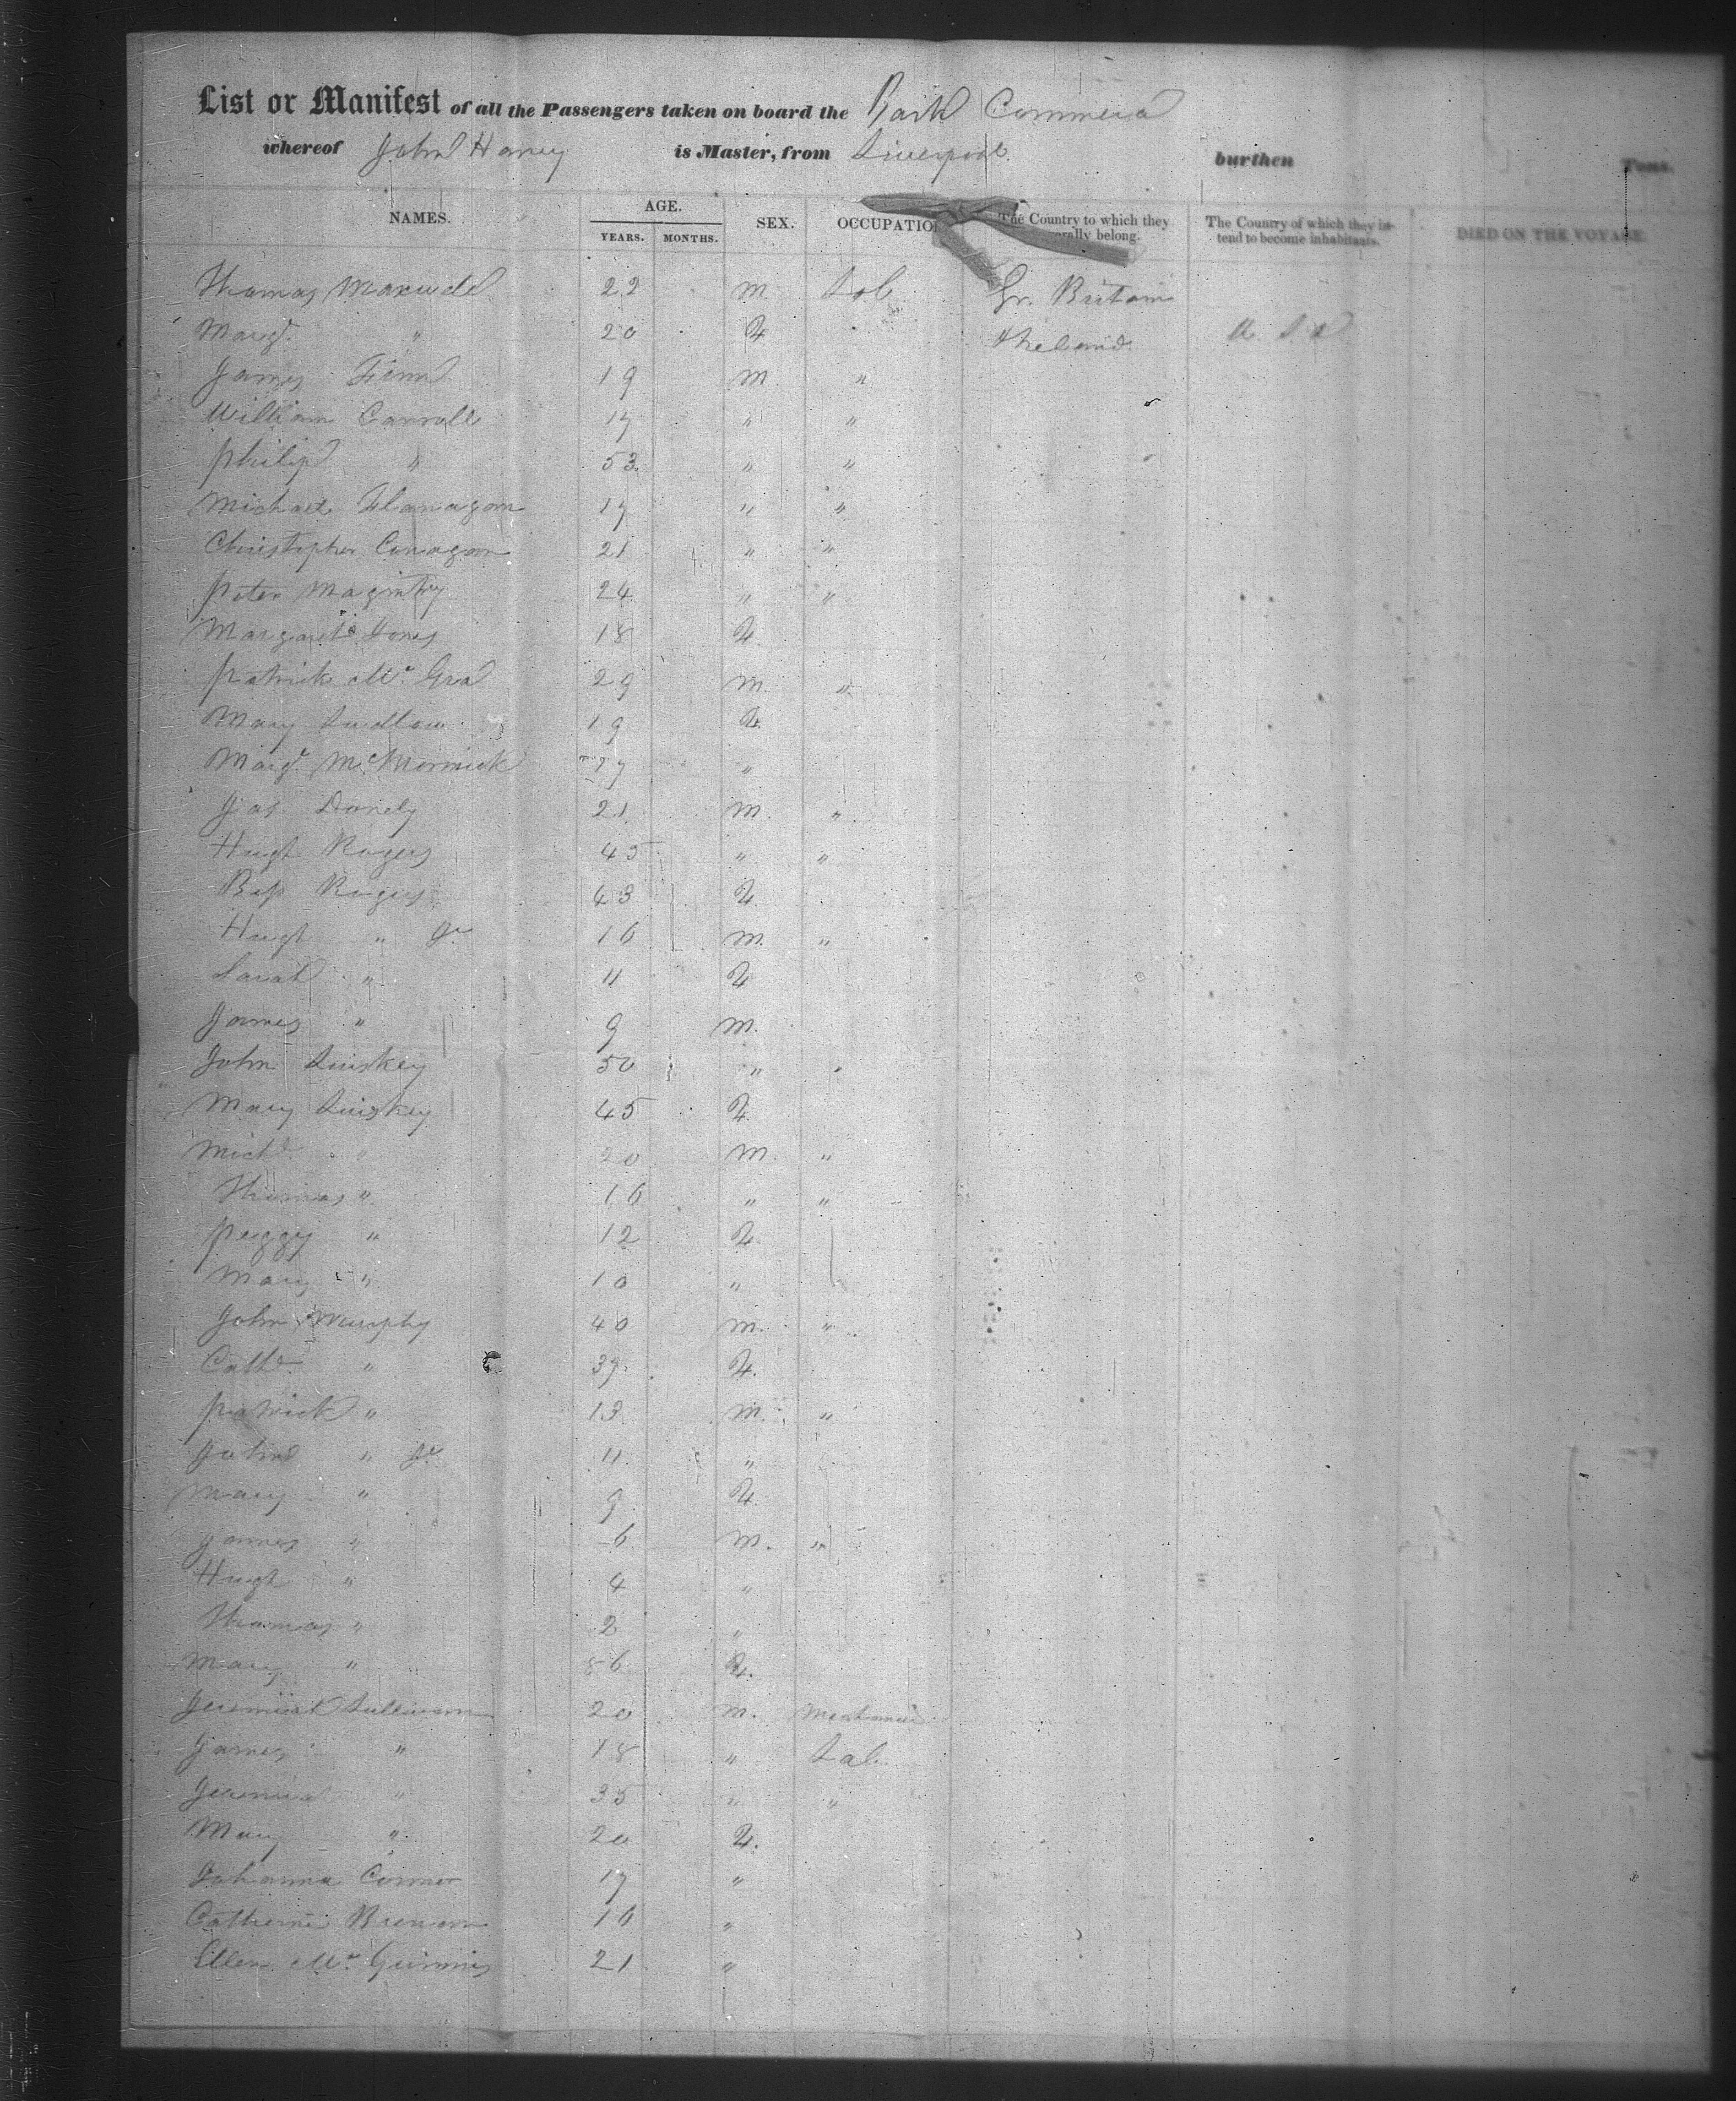 List or Manifest of all the Passengers taken on board the Bark Commerce
whereof John Haney is Master, from Liverpool burthen Tons.
NAMES. AGE. YEARS. MONTHS. SEX. OCCUPATIO The Country to which they erally belong. The Country of which they in-tend to become inhabitants. DIED ON THE VOYAGE
Thomas Maxwell 22 m Lab Gr. Britain
Margt. " 20 F Ireland U.S.A
James Finn 19 m "
William Carroll 17 " "
Philip " 53 " "
Michael Flanagan 17 " "
Christopher Conagan 21 " "
Peter Magintry 24 " "
Margaret Jones 18 F
Patrick Mc Gra 29 m. "
Mary Ludlow 19 F
Margt. McKormick 17 "
Jas Donely 21 m. "
Hugh Rogers 45 " "
Bess Rogers 43 F
Hugh " Jr 16 m. "
Sarah " 11 F
James " 9 m.
John Luiskey 50 "
Mary Luiskey 45 F
Michl. " 20 m. "
Thomas " 16 " "
Peggy " 12 F
Mary " 10 "
John Murphy 40 m. "
Cath " 39 F.
Patrick " 13 m. "
John " Jr 11 "
Mary " 9 F
James " 6 m. "
Hugh " 4 "
Thomas " 2 "
Mary " 56 F.
Jeremiah Sullivan 20 m. Mechanic
James " 18 " Lab
Jeremiah " 35 " "
Mary " 20 F.
Johanna Connor 17 "
Catherine Brennan 16 "
Ellen Mc Guinnis 21 "